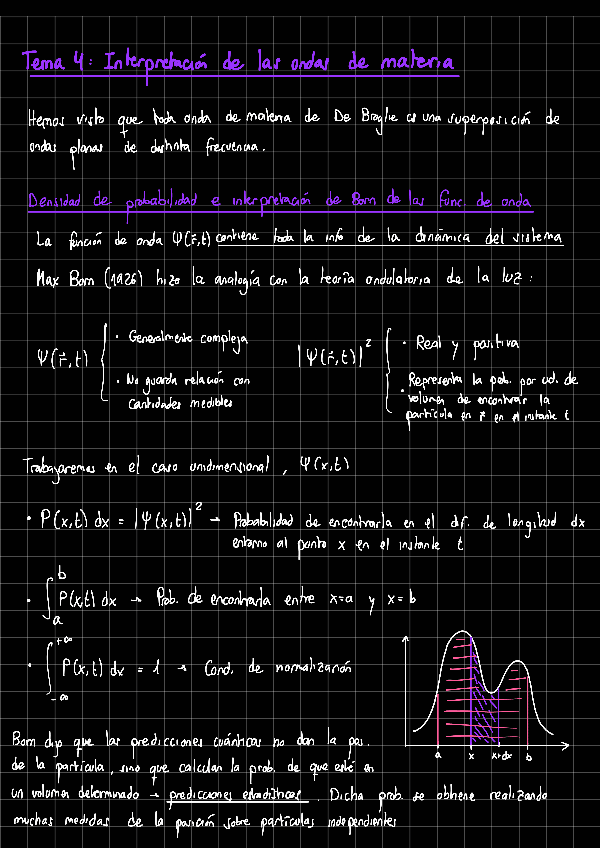 Tema 4: Interpretación de las ondas de materia
Hemos visto que toda onda de materia de De Broglie es una superposición de
ondas planas de distinta frecuencia.
Densidad de probabilidad e interpretación de Born de las func. de onda
La función de onda Ψ(r⃗,t) contiene toda la info de la dinámica del sistema
Max Born (1926) hizo la analogía con la teoría ondulatoria de la luz:
Ψ(r⃗,t) { · Generalmente compleja
· No guarda relación con
cantidades medibles
|Ψ(r⃗,t)|² { · Real y positiva
· Representa la prob. por ud. de
volumen de encontrar la
partícula en r⃗ en el instante t
Trabajaremos en el caso unidimensional, Ψ(x,t)
· P(x,t) dx = |Ψ(x,t)|² → Probabilidad de encontrarla en el dif. de longitud dx
entorno al punto x en el instante t
· ∫_a^b P(x,t) dx → Prob. de encontrarla entre x=a y x=b
· ∫_{-∞}^{+∞} P(x,t) dx = 1 → Cond. de normalización
a x x+dx b
Born dijo que las predicciones cuánticas no dan la pos.
de la partícula, sino que calculan la prob. de que esté en
un volumen determinado → predicciones estadísticas. Dicha prob. se obtiene realizando
muchas medidas de la posición sobre partículas independientes